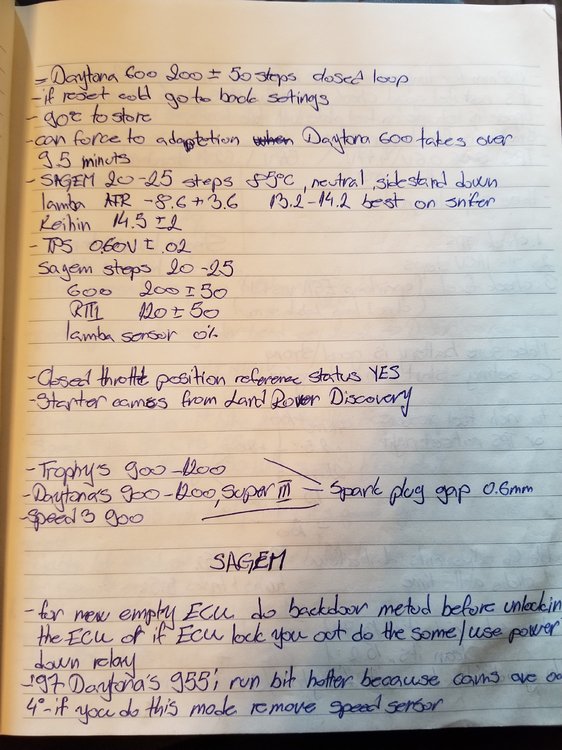 = Daytona 600 200 ± 50 steps closed loop
- if reset cold go to back setings
- 90°C to store
- can force to adaptetion Daytona 600 takes over
9.5 minuts
- SAGEM 20 - 25 steps 85°C, neutral, sidestand down
lamba -8.6 +3.6 13.2 - 14.2 best on snifer
Keihin 14.5 ± 2
- TPS 0.60V ± .02
sagem steps 20 - 25
600 200 ± 50
RIII 120 ± 50
lamba sensor
- Closed throttle position reference status YES
- Starter cames from Land Rover Discovery
- Trophy's 900 - 1200
- Daytona's 900 - 1200, Super III = Spark plug gap 0.6mm
- Speed 3 900
SAGEM
- for new empty ECU do backdoor metod before unlockin
the ECU or if ECU lock you out do the same/use power
down relay
- '97 Daytona's 955i run bit hotter because cams are
4° - if you do this mode remove speed sensor